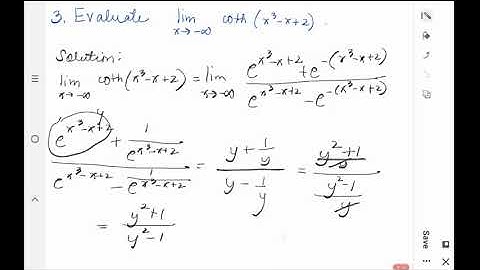 3. Evaluate lim x→-∞ coth (x³-x+2).
Solution:
lim x→-∞ coth(x³-x+2) = lim x→-∞ (e^(x³-x+2) + e^-(x³-x+2)) / (e^(x³-x+2) - e^-(x³-x+2))
y
(e^(x³-x+2) + 1/e^(x³-x+2)) / (e^(x³-x+2) - 1/e^(x³-x+2)) = (y + 1/y) / (y - 1/y) = ((y²+1)/y) / ((y²-1)/y)
= (y²+1) / (y²-1)
Save